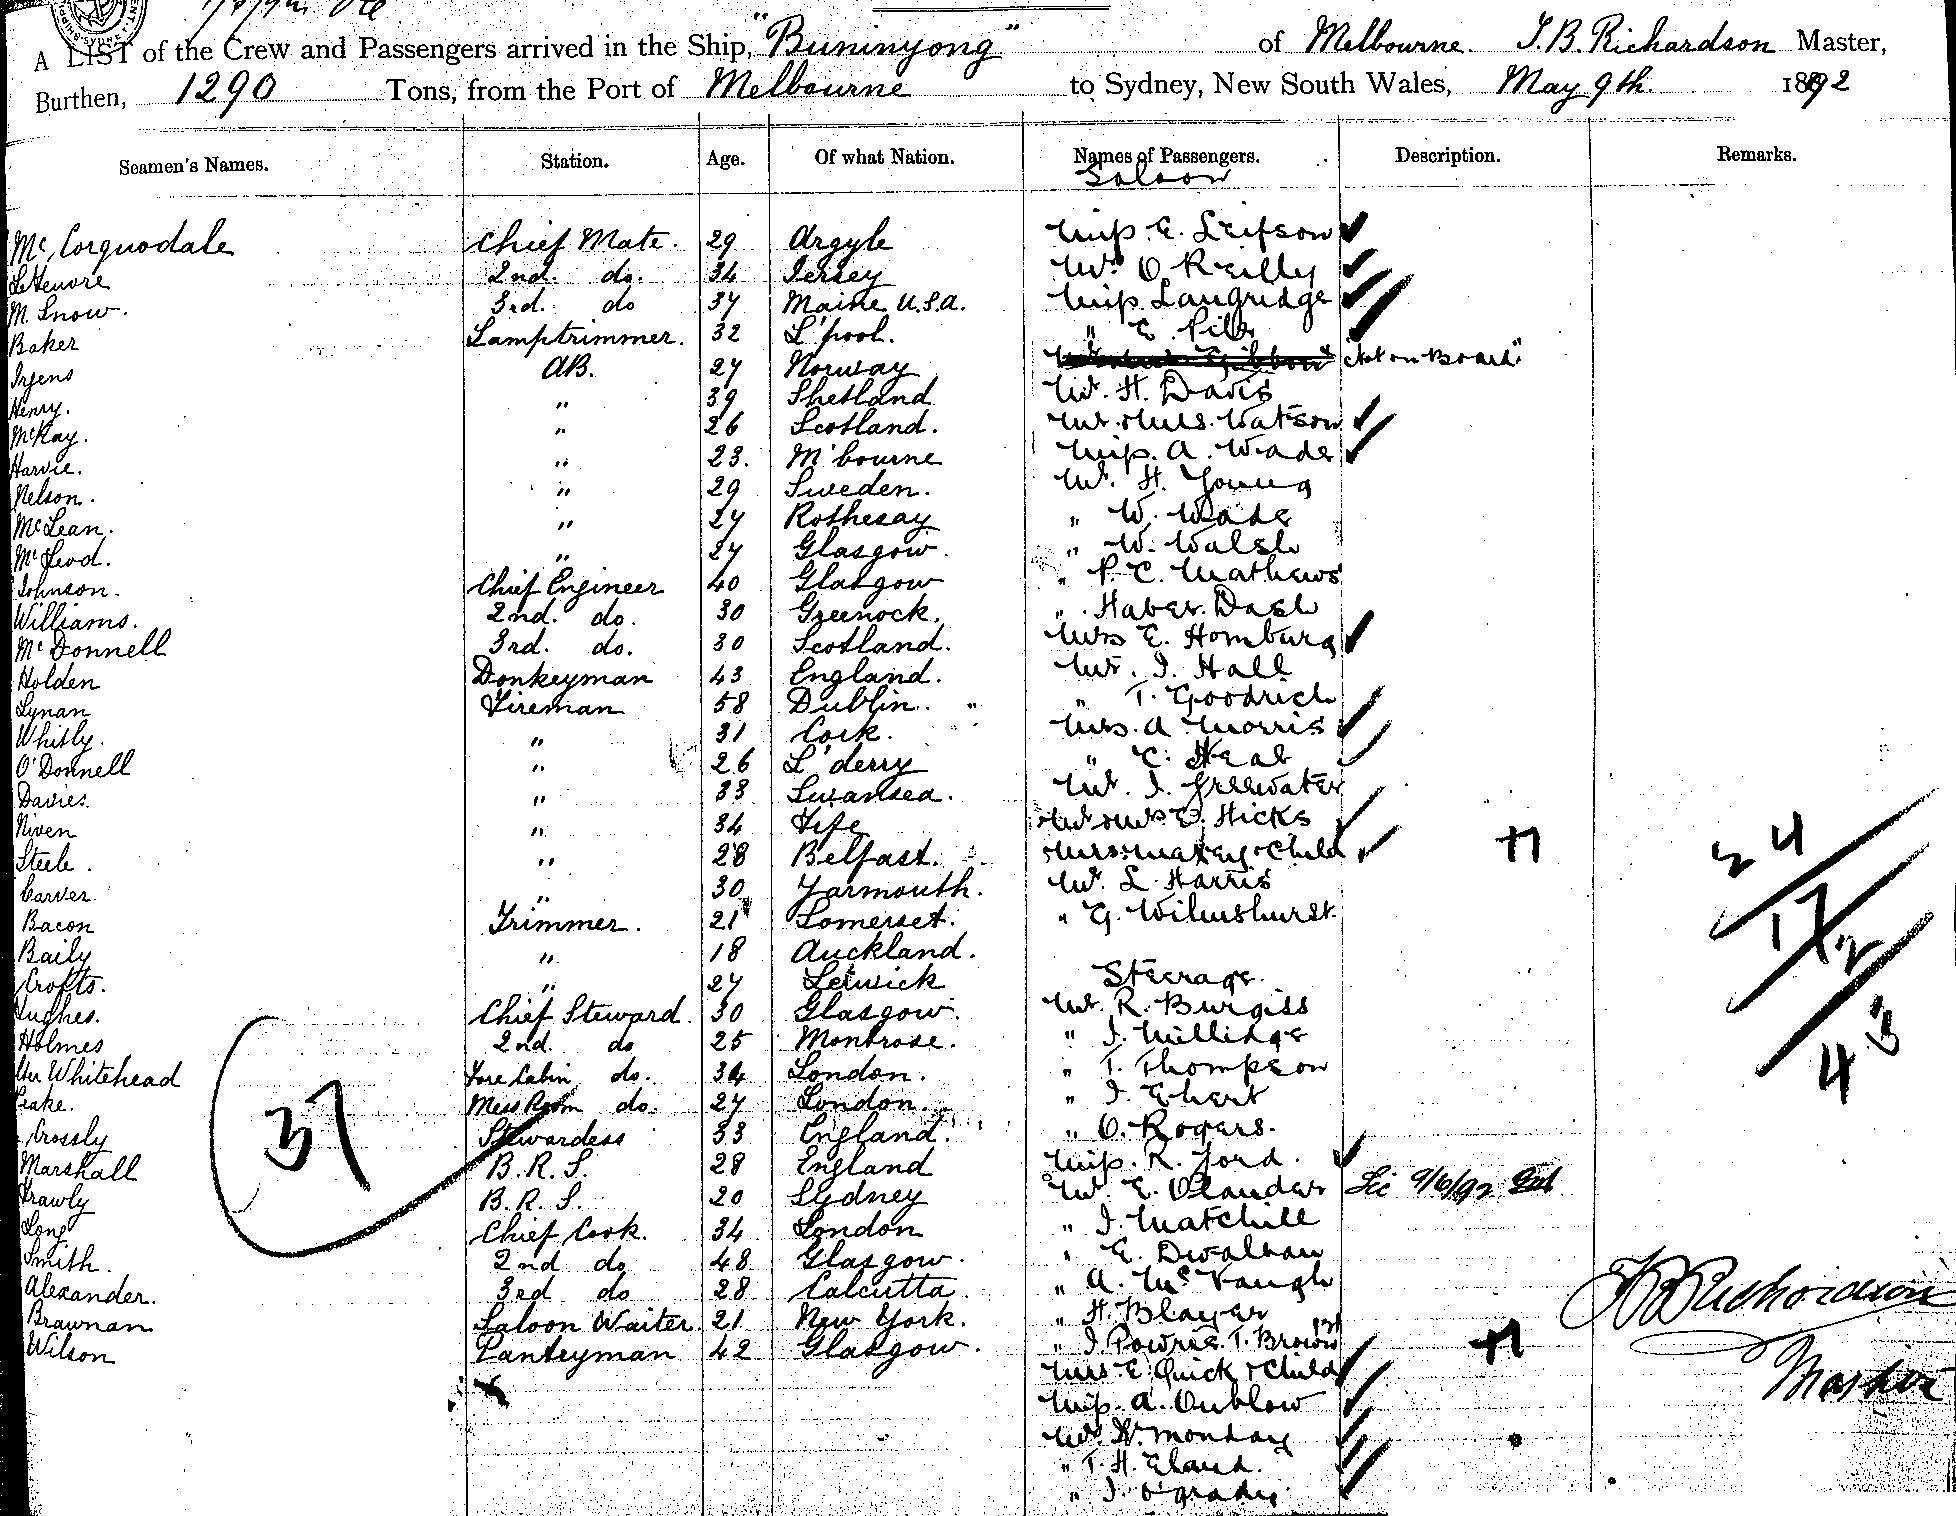 A LIST of the Crew and Passengers arrived in the Ship, "Buninyong" of Melbourne. T.B. Richardson Master,
Burthen, 1290 Tons, from the Port of Melbourne to Sydney, New South Wales, May 9th. 1892
Seamen's Names. Station. Age. Of what Nation. Names of Passengers. Description. Remarks.
Saloon
Mc Corquodale Chief Mate. 29 Argyle Miss. E. Leifson
2nd. do. 34 Jersey Mr. O'Reilly
M. Snow. 3rd. do 37 Maine U.S.A. Miss Langridge
Baker Lamptrimmer. 32 L'pool. " E.
Irjens AB. 27 Norway Not on Board
Henry. " 39 Shetland Mr. H. Davis
McKay. " 26 Scotland. Mr. & Mrs. Watson
Harvie. " 23. M'bourne Miss. A. Wade
Nelson. " 29 Sweden. Mr. H. Young
McLean. " 27 Rothesay " W. Wade
McLeod. " 27 Glasgow. " W. Walsh
Johnson. Chief Engineer 40 Glasgow " P. C. Mathews
Williams. 2nd. do. 30 Greenock. " Haber Dash
McDonnell 3rd. do. 30 Scotland. Mrs E. Homburg
Holden Donkeyman 43 England. Mr. J. Hall
Lynan Fireman 58 Dublin. " T. Goodrich
Whitly. " 31 Cork. Mrs. A Morris
O'Donnell " 26 L'derry " C. Heal
Davies. " 33 Swansea. Mr. J. Freewater
Niven " 34 Fife Mr & Mrs E. Hicks
Steele. " 28 Belfast. & Child
Carver. " 30 Yarmouth. Mr. L. Harris
Bacon Trimmer. 21 Somerset. " G. Wilmshurst.
Baily " 18 Auckland.
Crofts. " 27 Lerwick Steerage.
Hughes. Chief Steward. 30 Glasgow. Mr. R. Burgiss
Holmes 2nd. do 25 Montrose. " J. Millidge
Whitehead Fore Cabin do. 34 London. " T. Thompson
Leake. Mess Room do. 27 London. " J. Ebert
Crossly Stewardess 33 England. " O. Rogers.
Marshall B.R.S. 28 England Miss. R. Ford.
Frawly B.R.S. 20 Sydney Mr. E. Olander 9/6/92
Long Chief Cook. 34 London " J. Matchill
Smith. 2nd do 48 Glasgow. " E.
Alexander. 3rd do 28 Calcutta. " A. McVaugh
Brawnan Saloon Waiter. 21 New York. " H. Blayer
Wilson Panteyman 42 Glasgow. " J. Powrie. T. Brown
Mrs E. Quick & Child
Miss. A. Onblow
Mr. W. Monday
" T. H. Eland.
" J. O'grady
37
24
17
2
43
Richardson
Master